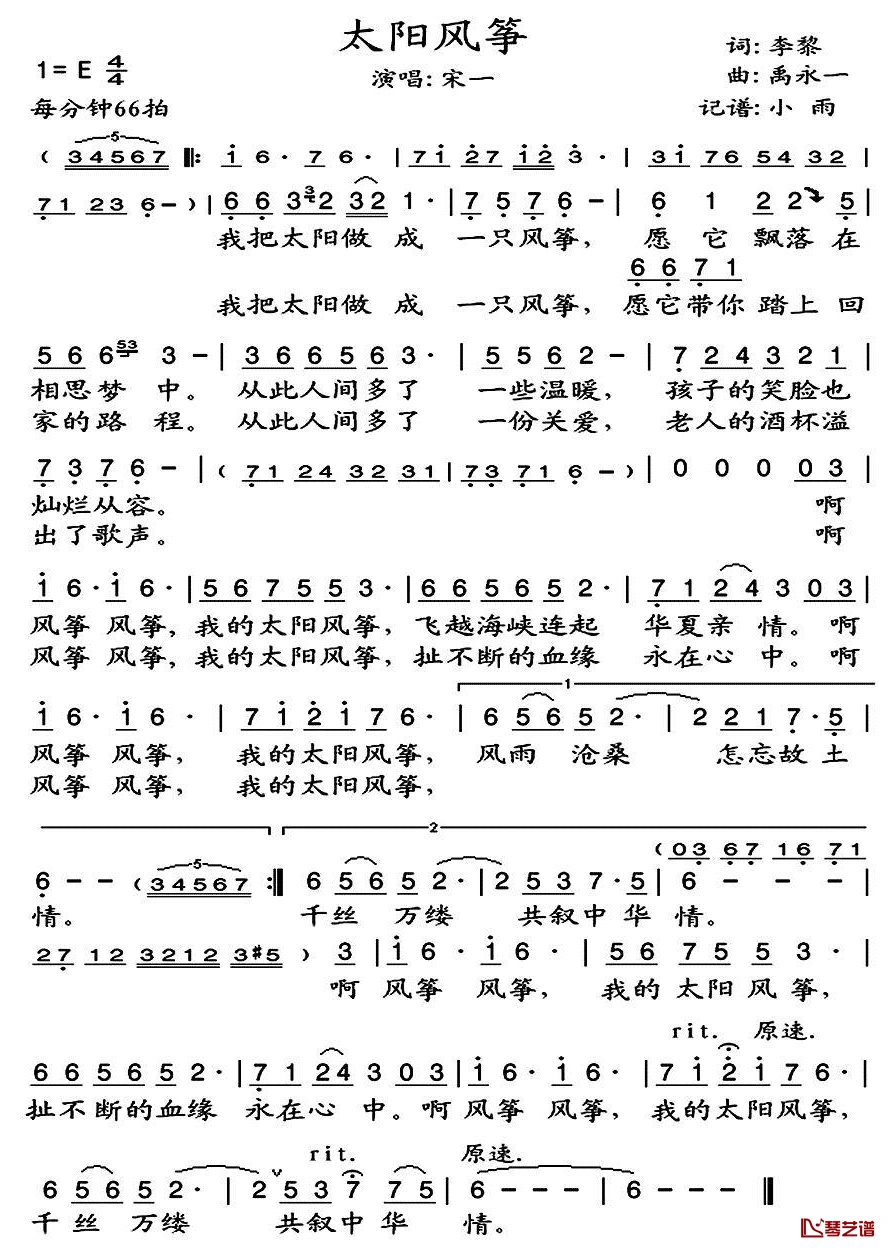 太阳风筝
词: 李黎
1= E 4/4
演唱: 宋一
曲: 禹永一
每分钟66拍
记谱: 小 雨
( 34567 ‖: i 6· 7 6· | 7i 27 i2 3· | 3i 76 54 32 |
71 23 6 – ) | 6 6 3 3 2 32 1· | 7 5 7 6 – | 6 1 2 2 5 |
我把太阳做 成 一只风筝, 愿 它 飘落 在
6 6 7 1
我把太阳做 成 一只风筝, 愿它带你 踏上 回
5 6 6 53 3 – | 3 6 6 5 6 3· | 5 5 6 2 – | 7 2 4 3 2 1 |
相思梦 中。 从此人间多了 一些温暖, 孩子的笑脸也
家的路 程。 从此人间多了 一份关爱, 老人的酒杯溢
7 3 7 6 – | ( 71 24 32 31 | 73 71 6 – ) | 0 0 0 0 3 |
灿烂从容。 啊
出了歌声。 啊
i 6· i 6· | 5 6 7 5 5 3· | 6 6 5 6 5 2· | 7 1 2 4 3 0 3 |
风筝 风筝, 我的太阳风筝, 飞越海峡连起 华夏亲 情。 啊
风筝 风筝, 我的太阳风筝, 扯不断的血缘 永在心 中。 啊
1
i 6· i 6· | 7 i 2 i 7 6· | 6 5 6 5 2· | 2 2 1 7· 5 |
风筝 风筝, 我的太阳风筝, 风雨 沧桑 怎忘故 土
风筝 风筝, 我的太阳风筝,
2
(03 67 16 71
6 – – ( 34567 :‖ 6 5 6 5 2· | 2 5 3 7· 5 | 6 – – –
情。 千丝 万缕 共叙中 华 情。
27 12 3212 3#5 ) 3 | i 6· i 6· | 5 6 7 5 5 3· |
啊 风筝 风筝, 我的 太阳 风 筝,
rit. 原速.
6 6 5 6 5 2· | 7 1 24 3 0 3 | i 6· i 6· | 7 i 2 i 7 6· |
扯不断的血缘 永在心 中。啊 风筝 风筝, 我的太阳风筝,
rit. 原速.
6 5 6 5 2· | 2 5 3 7 7 5 | 6 – – – | 6 – – ‖
千 丝 万缕 共叙中 华 情。
琴艺谱